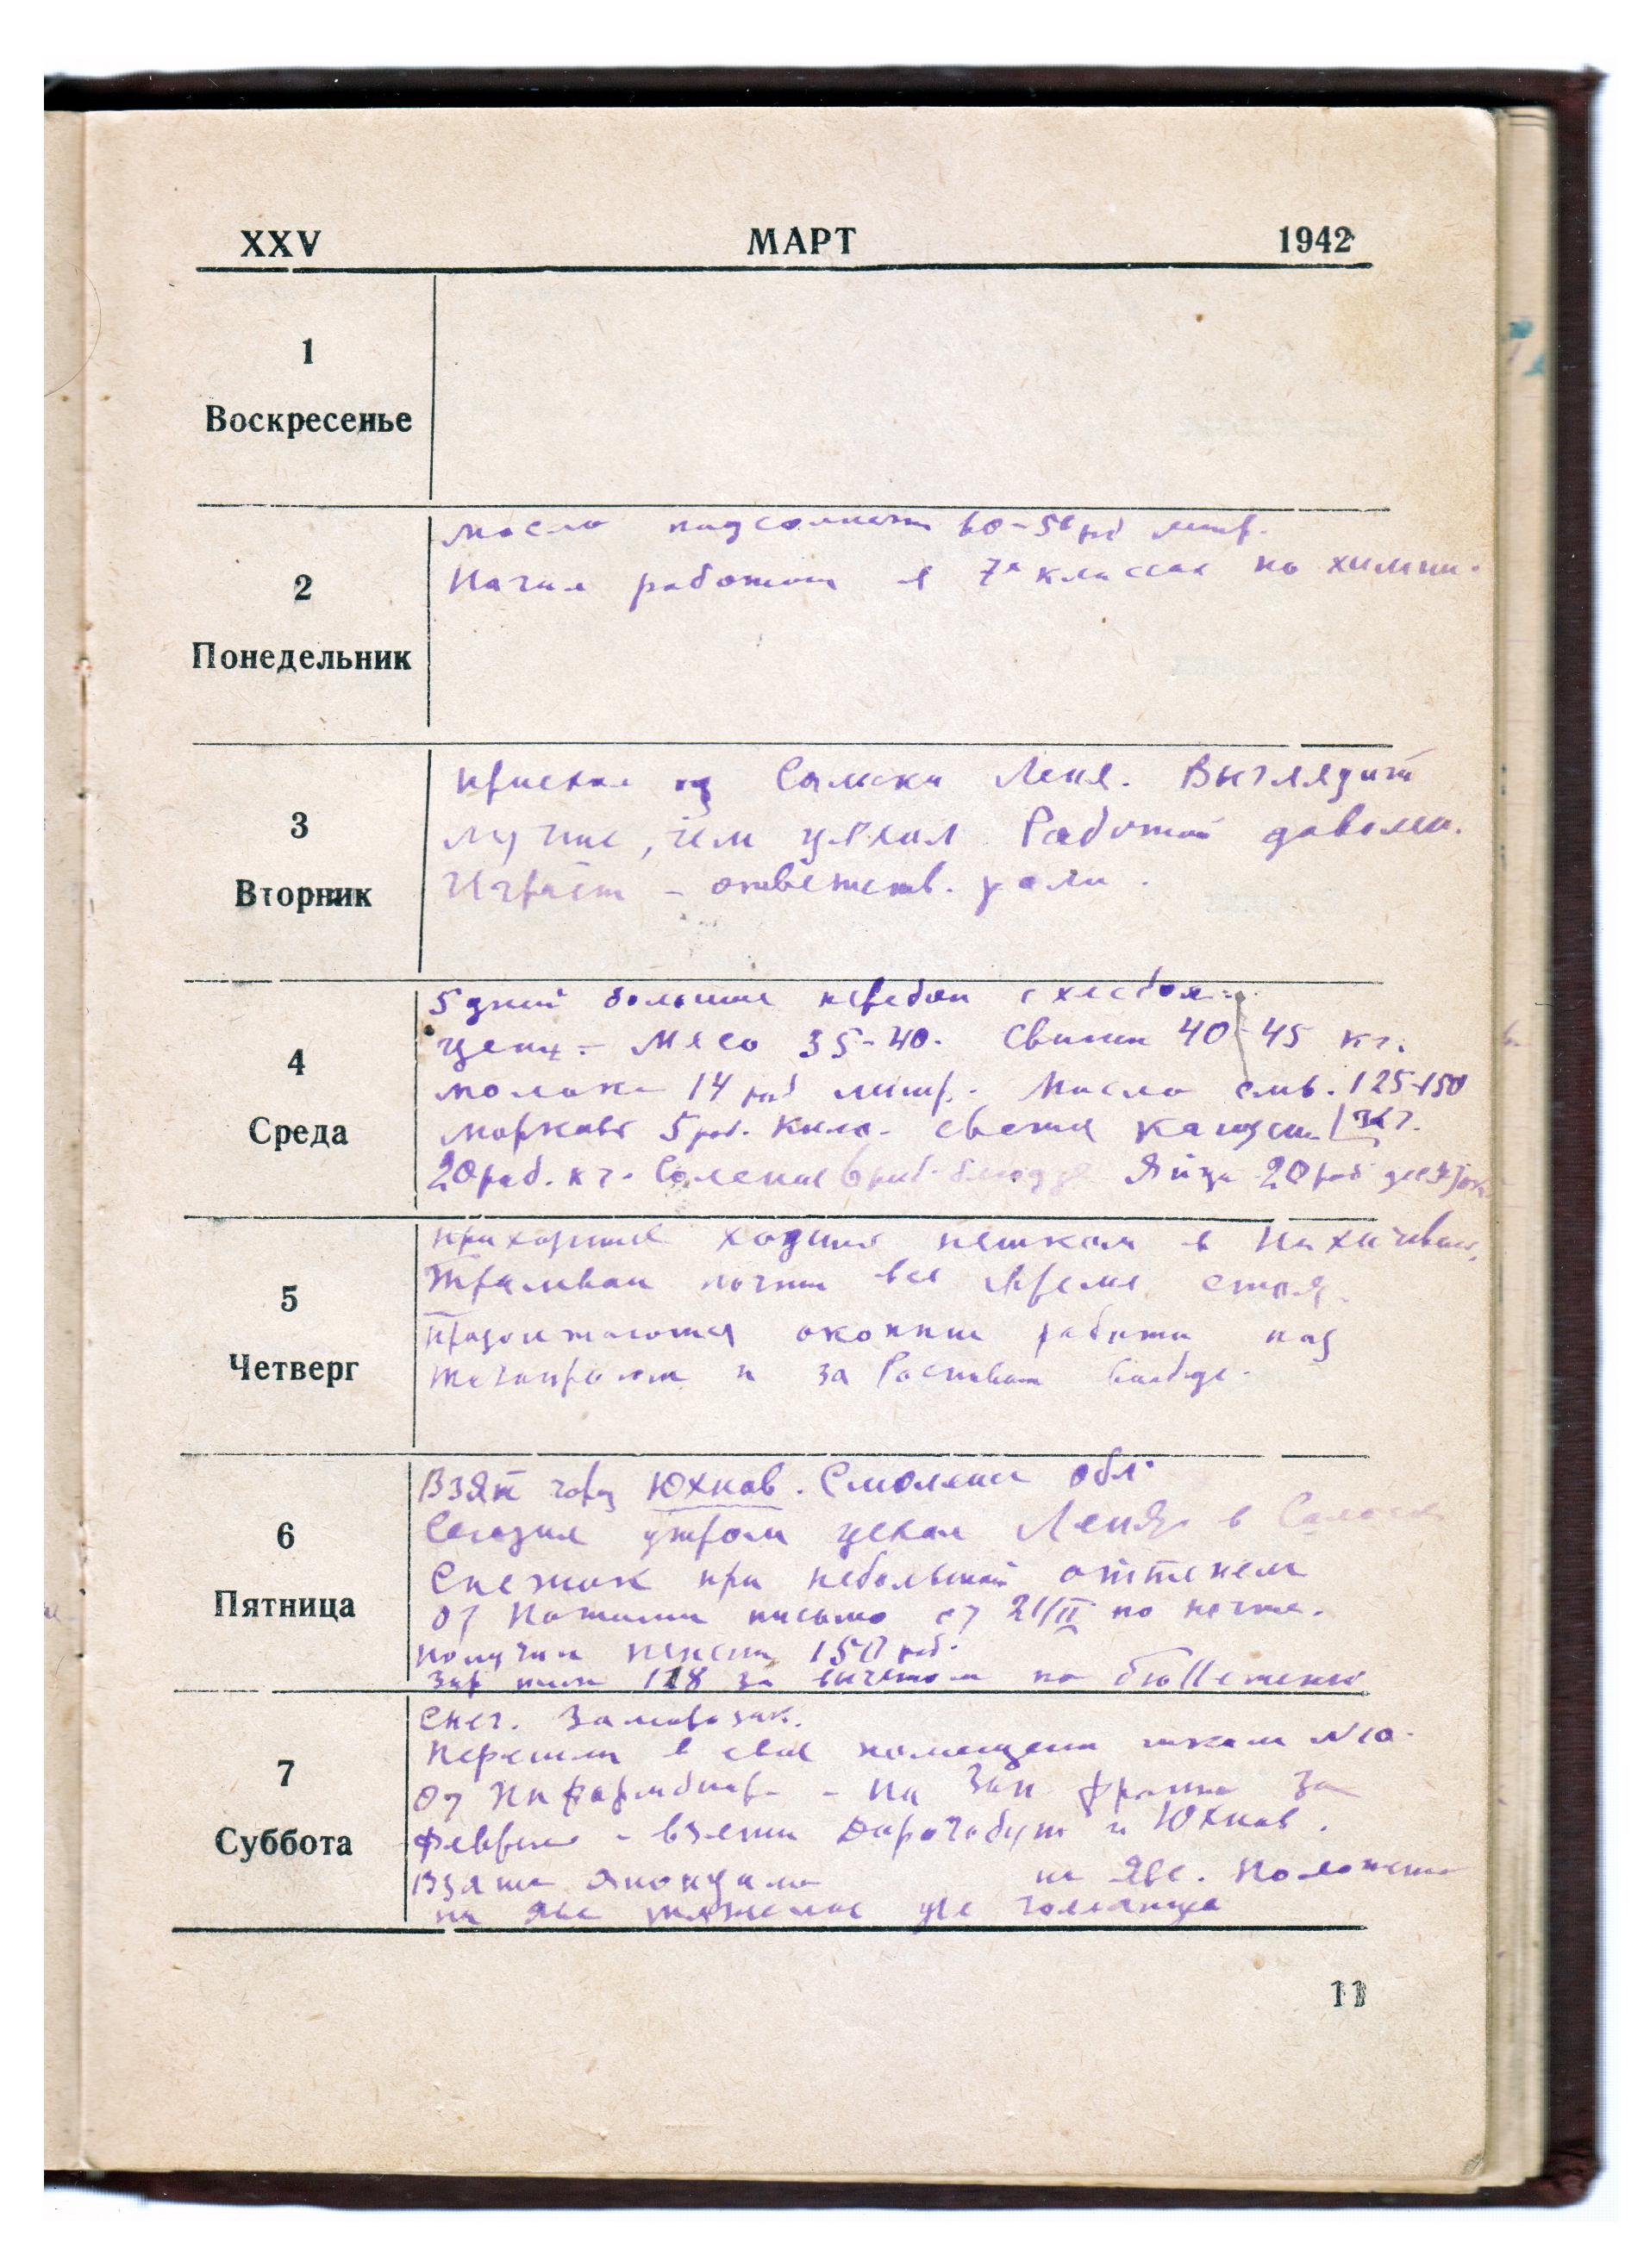 XXV МАРТ 1942
1
Воскресенье
масло подсолнечн 60-50 руб литр.
2
Начал работать в 7х классах по химии.
Понедельник
Приехал из Сальска Леня. Выглядит
3
лучше, чем уехал. Работой доволен.
Вторник
Играет - ответств. роли.
5 дней большие перебои с хлебом.
4
Цены - Мясо 35-40. Свинин 40-45 кг.
молоко 14 руб литр. Масло слив. 125-150
Среда
морковь 5 руб. кило. свежая капуста
20 руб. кг. Соление 6 руб. блюдце Яйца 20 руб десяток
Приходится ходить пешком в Нахичевань,
5
Трамваи почти все время стоят.
Продолжаются окопные работы под
Четверг
Таганрогом и за Ростовом
Взят город Юхнов. Смоленск обл.
6
Сегодня утром уехал Леня в Сальск
Снежок при небольшой оттепели
Пятница
От Наташи письмо от 21/II по почте.
Получил пенсию 150 руб.
Зарплата 118 за вычетом по бюллетеню
Снег.
Перешли в свое помещение школы №10.
7
От Информбюро - На Зап фронте за
Суббота
февраль - взяты Дорогобуж и Юхнов.
Взята японцами на Яве. Положение
на Яве тяжелое для голландцев
11